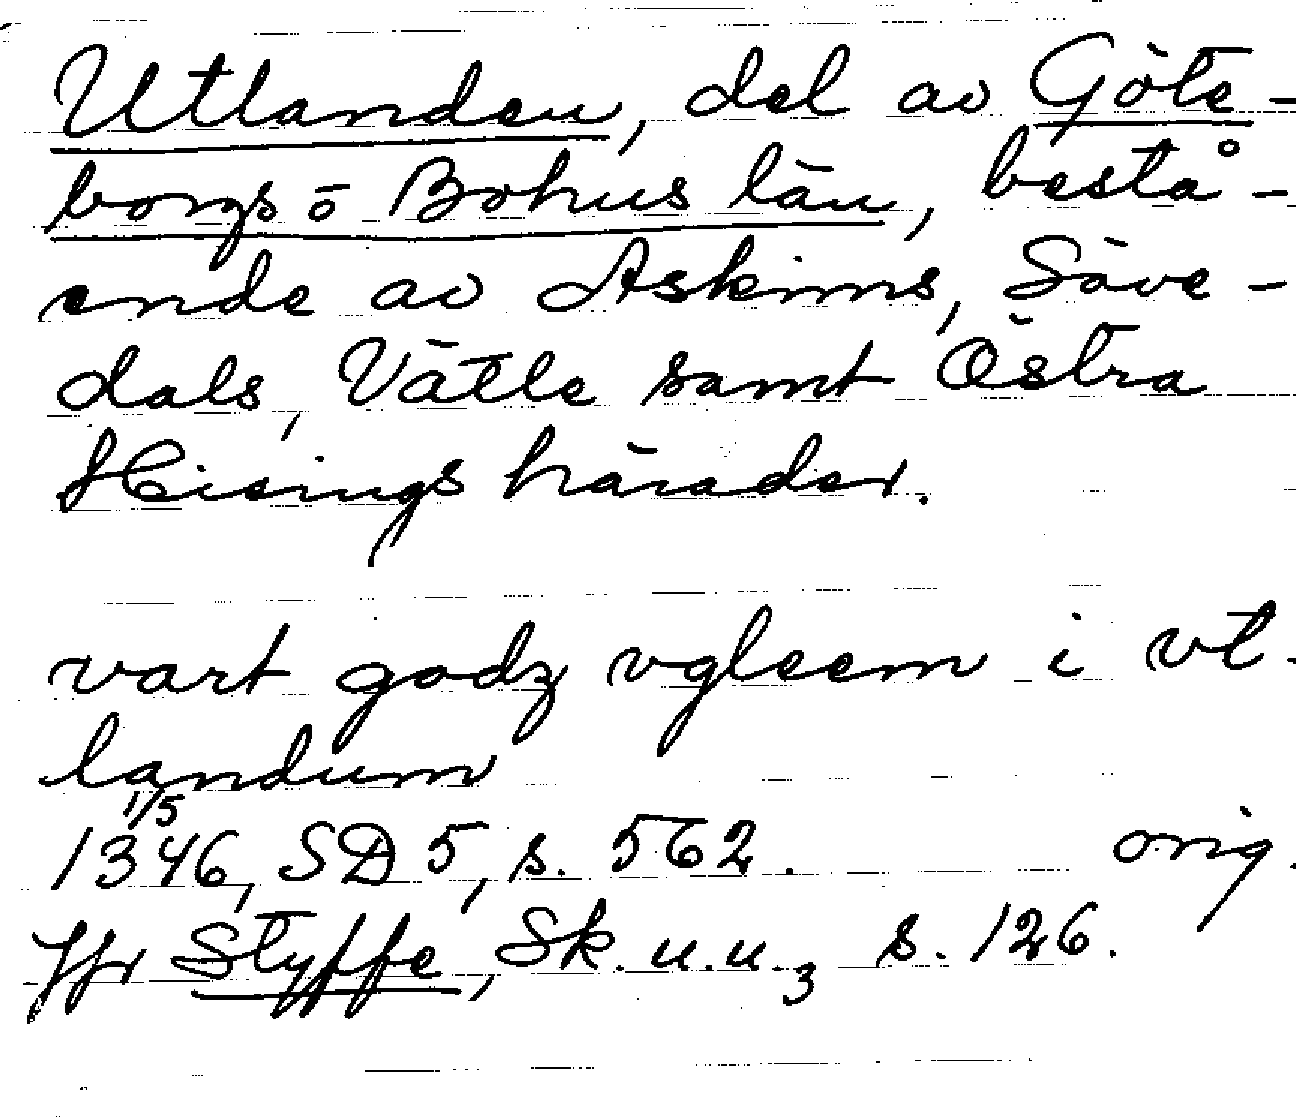 Utlanden, del av Göte-
borgs ō Bohus län, bestå-
ende av Askims, Säve-
dals, Vättle samt Östra
Hisings härader.
vart godz vgleem i vt-
landum
1/5
1346, SD 5, s. 562. orig.
Jfr Styffe, Sk. u. u. 3 s. 126.